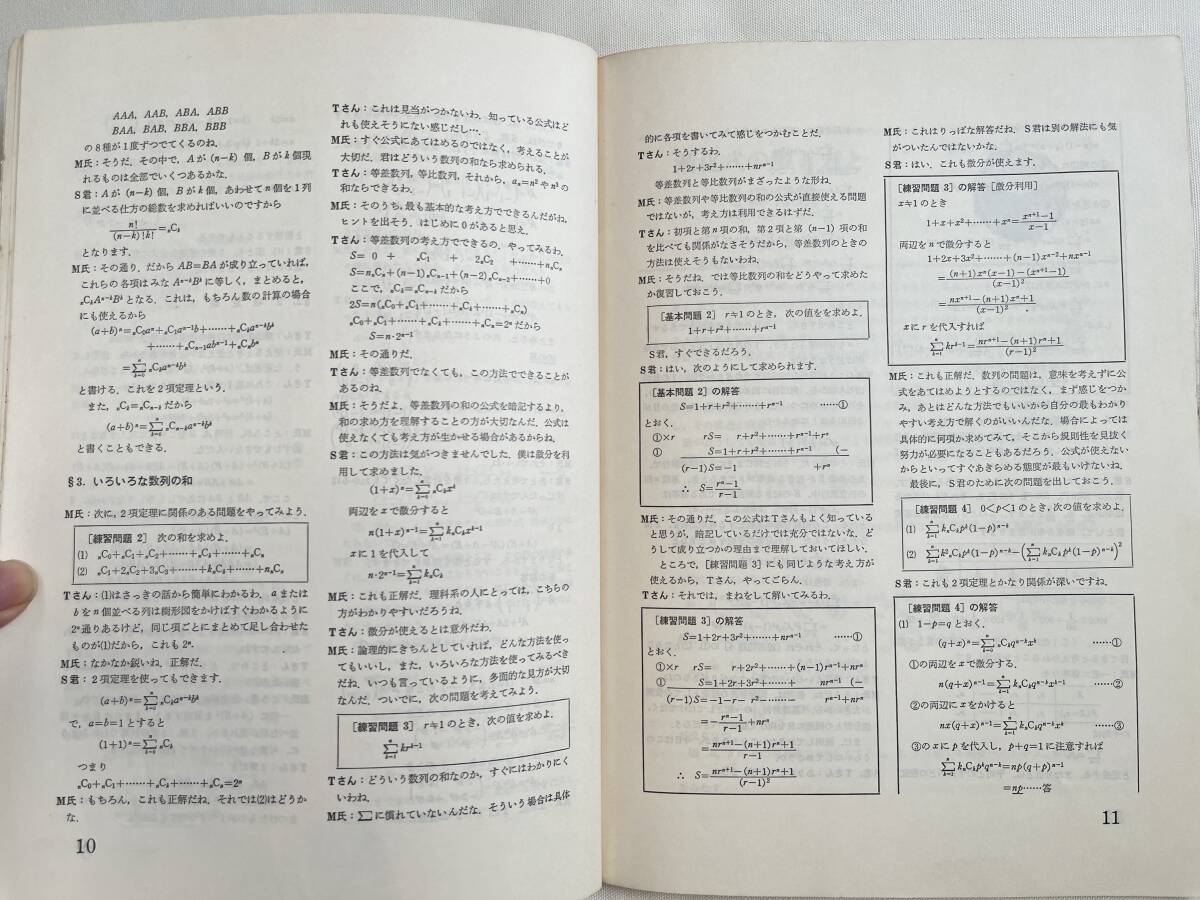 AAA, AAB, ABA, ABB
BAA, BAB, BBA, BBB
の8種が1度ずつでてくるのね.
M氏：そうだ. その中で, Aが(n-k)個, Bがk個現
れるものは全部でいくつあるかな.
S君：Aが(n-k)個, Bがk個, あわせてn個を1列
に並べる仕方の総数を求めればいいのですから
n!/((n-k)!k!)=ₙCₖ
となります.
M氏：その通り. だからAB=BAが成り立っていれば,
これらの各項はみなAⁿ⁻ᵏBᵏに等しく, まとめると,
ₙCₖAⁿ⁻ᵏBᵏとなる. これは, もちろん数の計算の場合
にも使えるから
(a+b)ⁿ=ₙC₀aⁿ+ₙC₁aⁿ⁻¹b+……+ₙCₖaⁿ⁻ᵏbᵏ
+……+ₙCₙ₋₁abⁿ⁻¹+ₙCₙbⁿ
=∑[k=0→n] ₙCₖaⁿ⁻ᵏbᵏ
と書ける. これを2項定理という.
また, ₙCₖ=ₙCₙ₋ₖだから
(a+b)ⁿ=∑[k=0→n] ₙCₙ₋ₖaⁿ⁻ᵏbᵏ
と書くこともできる.
§3. いろいろな数列の和
M氏：次に, 2項定理に関係のある問題をやってみよう.
[練習問題 2] 次の和を求めよ.
(1) ₙC₀+ₙC₁+ₙC₂+……+ₙCₖ+……+ₙCₙ
(2) ₙC₁+2ₙC₂+3ₙC₃+……+kₙCₖ+……+nₙCₙ
Tさん：(1)はさっきの話から簡単にわかるわ. aまたは
bをn個並べる列は樹形図をかけばすぐわかるように
2ⁿ通りあるけど, 同じ項ごとにまとめて足し合わせた
ものが(1)だから, これも2ⁿ.
M氏：なかなか鋭いね. 正解だ.
S君：2項定理を使ってもできます.
(a+b)ⁿ=∑[k=0→n] ₙCₖaⁿ⁻ᵏbᵏ
で, a=b=1とすると
(1+1)ⁿ=∑[k=0→n] ₙCₖ
つまり
ₙC₀+ₙC₁+……+ₙCₖ+……+ₙCₙ=2ⁿ
M氏：もちろん, これも正解だね. それでは(2)はどうか
な.
10
Tさん：これは見当がつかないわ. 知っている公式はど
れも使えそうにない感じだし….
M氏：すぐ公式にあてはめるのではなく, 考えることが
大切だ. 君はどういう数列の和なら求められる.
Tさん：等差数列, 等比数列, それから, aₙ=n²やn³の
和ならできるわ.
M氏：そのうち, 最も基本的な考え方でできるんだがね.
ヒントを出そう. はじめに0があると思え.
Tさん：等差数列の考え方でできるの. やってみるわ.
S= 0 + ₙC₁ + 2ₙC₂ +……+nₙCₙ
S=nₙCₙ+(n-1)ₙCₙ₋₁+(n-2)ₙCₙ₋₂+……+0
ここで, ₙCₖ=ₙCₙ₋ₖだから
2S=n(ₙC₀+ₙC₁+……+ₙCₖ+……+ₙCₙ)
ₙC₀+ₙC₁+……+ₙCₖ+……+ₙCₙ=2ⁿだから
S=n·2ⁿ⁻¹
M氏：その通りだ.
Tさん：等差数列でなくても, この方法でできることが
あるのね.
M氏：そうだよ. 等差数列の和の公式を暗記するより,
和の求め方を理解することの方が大切なんだ. 公式は
使えなくても考え方が生かせる場合があるからね.
S君：この方法は気がつきませんでした. 僕は微分を利
用して求めました.
(1+x)ⁿ=∑[k=0→n] ₙCₖxᵏ
両辺をxで微分して
n(1+x)ⁿ⁻¹=∑[k=1→n] kₙCₖxᵏ⁻¹
xに1を代入して
n·2ⁿ⁻¹=∑[k=1→n] kₙCₖ
M氏：これも正解だ. 理科系の人にとっては, こちらの
方がわかりやすいだろうね.
Tさん：微分が使えるとは意外だわ.
M氏：論理的にきちんとしていれば, どんな方法を使っ
てもいいし, また, いろいろな方法を使ってみるべき
だね. いつも言っているように, 多面的な見方が大切
なんだ. ついでに, 次の問題を考えてみよう.
[練習問題 3] r≠1のとき, 次の値を求めよ.
∑[k=1→n] krᵏ⁻¹
Tさん：どういう数列の和なのか, すぐにはわかりにく
いわね.
M氏：∑に慣れていないんだな. そういう場合は具体
的に各項を書いてみて感じをつかむことだ.
Tさん：そうするわ.
1+2r+3r²+……+nrⁿ⁻¹
等差数列と等比数列がまざったような形ね.
M氏：等差数列や等比数列の和の公式が直接使える問題
ではないが, 考え方は利用できるはずだ.
Tさん：初項と第n項の和, 第2項と第(n-1)項の和
を比べても関係がなさそうだから, 等差数列のときの
方法は使えそうもないわね.
M氏：そうだね. では等比数列の和をどうやって求めた
か復習しておこう.
[基本問題 2] r≠1のとき, 次の値を求めよ.
1+r+r²+……+rⁿ⁻¹
S君, すぐできるだろう.
S君：はい. 次のようにして求められます.
[基本問題 2] の解答
S=1+r+r²+……+rⁿ⁻¹ ……①
とおく.
①×r rS= r+r²+……+rⁿ⁻¹+rⁿ
① S=1+r+r²+……+rⁿ⁻¹ (-
(r-1)S=-1 +rⁿ
∴ S=(rⁿ-1)/(r-1)
M氏：その通りだ. この公式はTさんもよく知っている
と思うが, 暗記しているだけでは充分ではないな. ど
うして成り立つかの理由まで理解しておいてほしい.
ところで, [練習問題 3] にも同じような考え方が
使えるから, Tさん, やってごらん.
Tさん：それでは, まねをして解いてみるわ.
[練習問題 3] の解答
S=1+2r+3r²+……+nrⁿ⁻¹ ……①
とおく.
①×r rS= r+2r²+……+(n-1)rⁿ⁻¹+nrⁿ
① S=1+2r+3r²+……+ nrⁿ⁻¹ (-
(r-1)S=-1-r-r²-…… -rⁿ⁻¹+nrⁿ
=-(rⁿ-1)/(r-1)+nrⁿ
=(nrⁿ⁺¹-(n+1)rⁿ+1)/(r-1)
∴ S=(nrⁿ⁺¹-(n+1)rⁿ+1)/(r-1)²
M氏：これはりっぱな解答だね. S君は別の解法にも気
がついたんではないかな.
S君：はい. これも微分が使えます.
[練習問題 3] の解答 [微分利用]
x≠1のとき
1+x+x²+……+xⁿ=(xⁿ⁺¹-1)/(x-1)
両辺をnで微分すると
1+2x+3x²+……+(n-1)xⁿ⁻²+nxⁿ⁻¹
=((n+1)xⁿ(x-1)-(xⁿ⁺¹-1))/(x-1)²
=(nxⁿ⁺¹-(n+1)xⁿ+1)/(x-1)².
xにrを代入すれば
∑[k=1→n] krᵏ⁻¹=(nrⁿ⁺¹-(n+1)rⁿ+1)/(r-1)²
M氏：これも正解だ. 数列の問題は, 意味を考えずに公
式をあてはめようとするのではなく, まず感じをつか
み, あとはどんな方法でもいいから自分の最もわかり
やすい考え方で解くのがいいんだな. 場合によっては
具体的に何項か求めてみて, そこから規則性を見抜く
努力が必要になることもあるだろう. 公式が使えない
からといってすぐあきらめる態度が最もいけないね.
最後に, S君のために次の問題を出しておこう.
[練習問題 4] 0<p<1のとき, 次の値を求めよ.
(1) ∑[k=1→n] kₙCₖpᵏ(1-p)ⁿ⁻ᵏ
(2) ∑[k=1→n] k²ₙCₖpᵏ(1-p)ⁿ⁻ᵏ-(∑[k=1→n] kₙCₖpᵏ(1-p)ⁿ⁻ᵏ)²
S君：これも2項定理とかなり関係が深いですね.
[練習問題 4] の解答
(1) 1-p=qとおく.
(q+x)ⁿ=∑[k=0→n] ₙCₖqⁿ⁻ᵏxᵏ ……①
①の両辺をxで微分する.
n(q+x)ⁿ⁻¹=∑[k=1→n] kₙCₖqⁿ⁻ᵏxᵏ⁻¹ ……②
②の両辺にxをかけると
nx(q+x)ⁿ⁻¹=∑[k=1→n] kₙCₖqⁿ⁻ᵏxᵏ ……③
③のxにpを代入し, p+q=1に注意すれば
∑[k=1→n] kₙCₖpᵏqⁿ⁻ᵏ=np(q+p)ⁿ⁻¹
=np……答
11